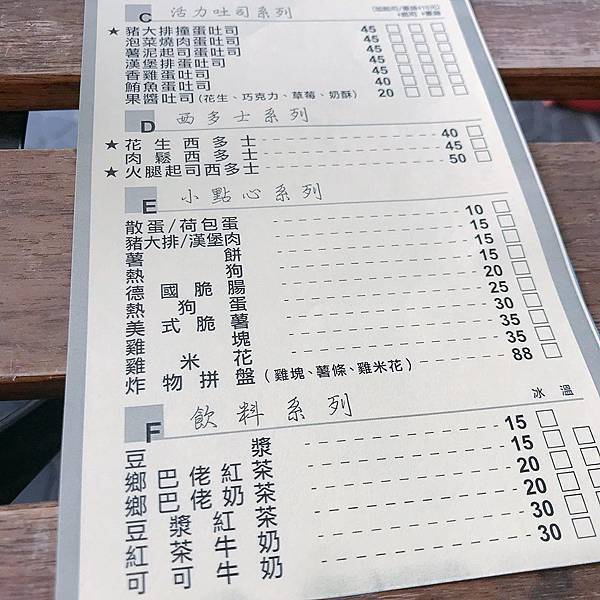 C 活力吐司系列
★豬大排撞蛋吐司 45
泡菜燒肉蛋吐司 45
薯泥起司蛋吐司 45
漢堡排蛋吐司 45
香雞蛋吐司 45
鮪魚蛋吐司 40
果醬吐司(花生、巧克力、草莓、奶酥) 20
D 西多士系列
★花生西多士 40
肉鬆西多士 45
★火腿起司西多士 50
E 小點心系列
散蛋/荷包蛋 10
豬大排/漢堡肉 15
薯餅 15
熱狗 15
德國脆腸 20
熱狗蛋 25
美式脆薯 30
雞塊 35
雞米花 35
炸物拼盤(雞塊、薯條、雞米花) 88
F 飲料系列 冰 溫
豆漿 15
鄉巴佬紅茶 15
鄉巴佬奶茶 20
豆漿紅茶 20
紅茶牛奶 30
可可牛奶 30